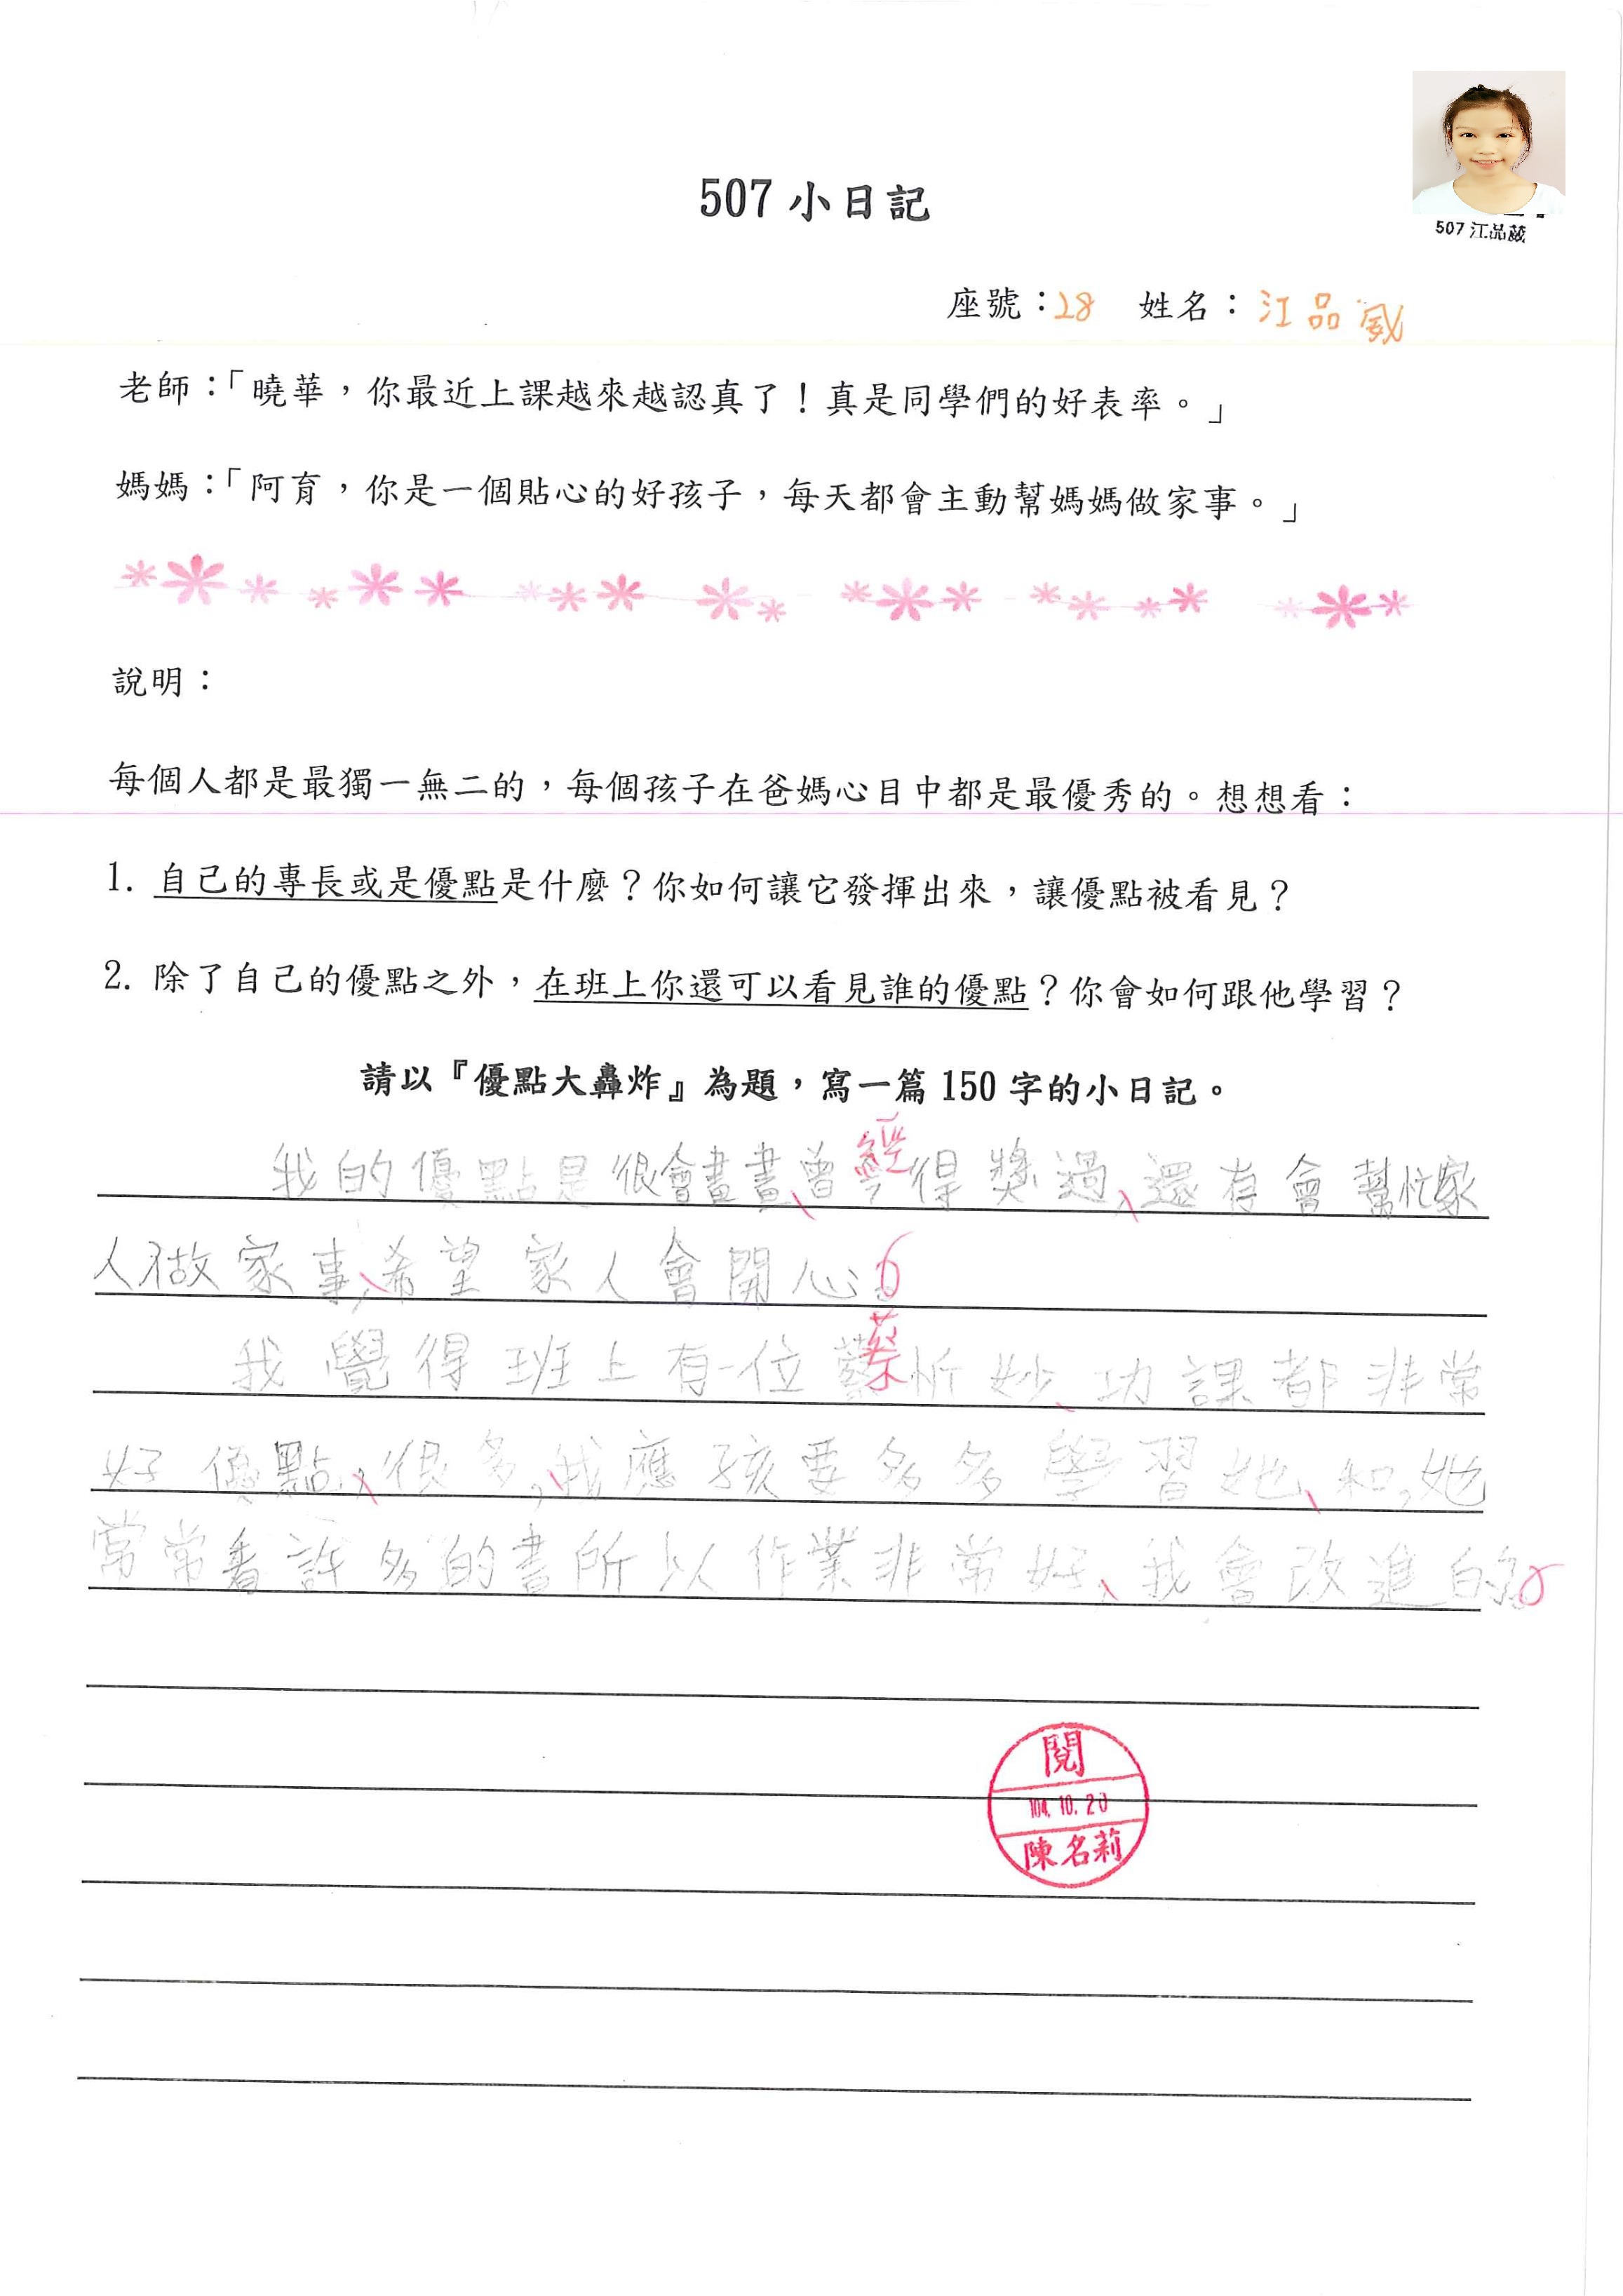 507 江品葳
507 小日記
座號：28 姓名：江品葳
老師：「曉華，你最近上課越來越認真了！真是同學們的好表率。」
媽媽：「阿育，你是一個貼心的好孩子，每天都會主動幫媽媽做家事。」
說明：
每個人都是最獨一無二的，每個孩子在爸媽心目中都是最優秀的。想想看：
1. 自己的專長或是優點是什麼？你如何讓它發揮出來，讓優點被看見？
2. 除了自己的優點之外，在班上你還可以看見誰的優點？你會如何跟他學習？
請以『優點大轟炸』為題，寫一篇 150 字的小日記。
我的優點是很會畫畫、曾經得獎過、還有會幫忙家
人做家事、希望家人會開心。
我覺得班上有一位蔡忻妙、功課都非常
好優點、很多、我應孩要多多學習她、和,她
常常看許多的書所以作業非常好、我會改進的。
閱
104.10.20
陳名莉